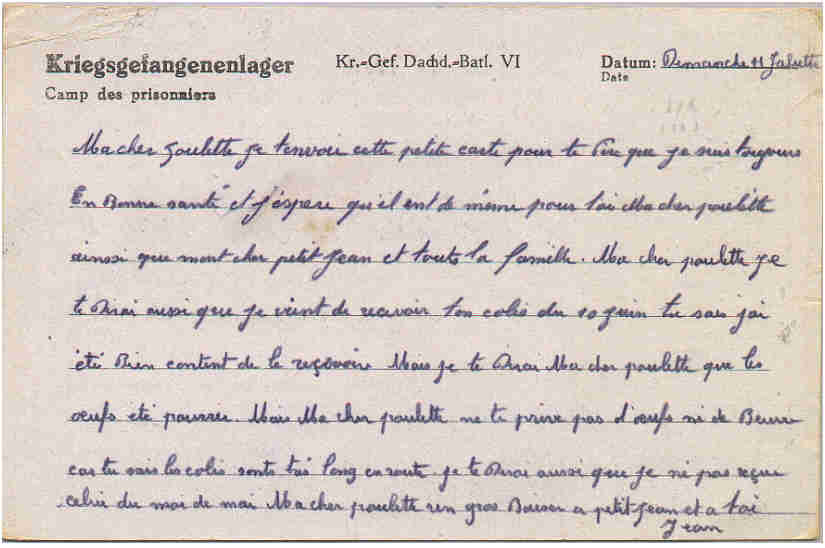 Kriegsgefangenenlager Kr.-Gef. Dachd.-Batl. VI Datum: Dimanche 11 Juliette
Camp des prisonniers Date
Ma cher paulette je tenvoie cette petite carte pour te Dire que je suis toujours
En Bonne santé et j'espere qu'il ent de même pour toi Ma cher paulette
ainsi que mont cher petit jean et toute la famille. Ma cher paulette je
te Dirai aussi que je vient de recevoir ton colis du 10 juin tu sais jai
été Bien content de le reçevoire Mais je te Dirai Ma cher paulette que les
oeufs été pourrie. Mais Ma cher paulette ne te prive pas d'oeufs ni de Beurre
car tu sais les colis sonts très long en route. je te Dirai aussi que je ne pas reçue
celui du moi de mai Ma cher paulette un gros Baiser a petit jean et a toi
Jean